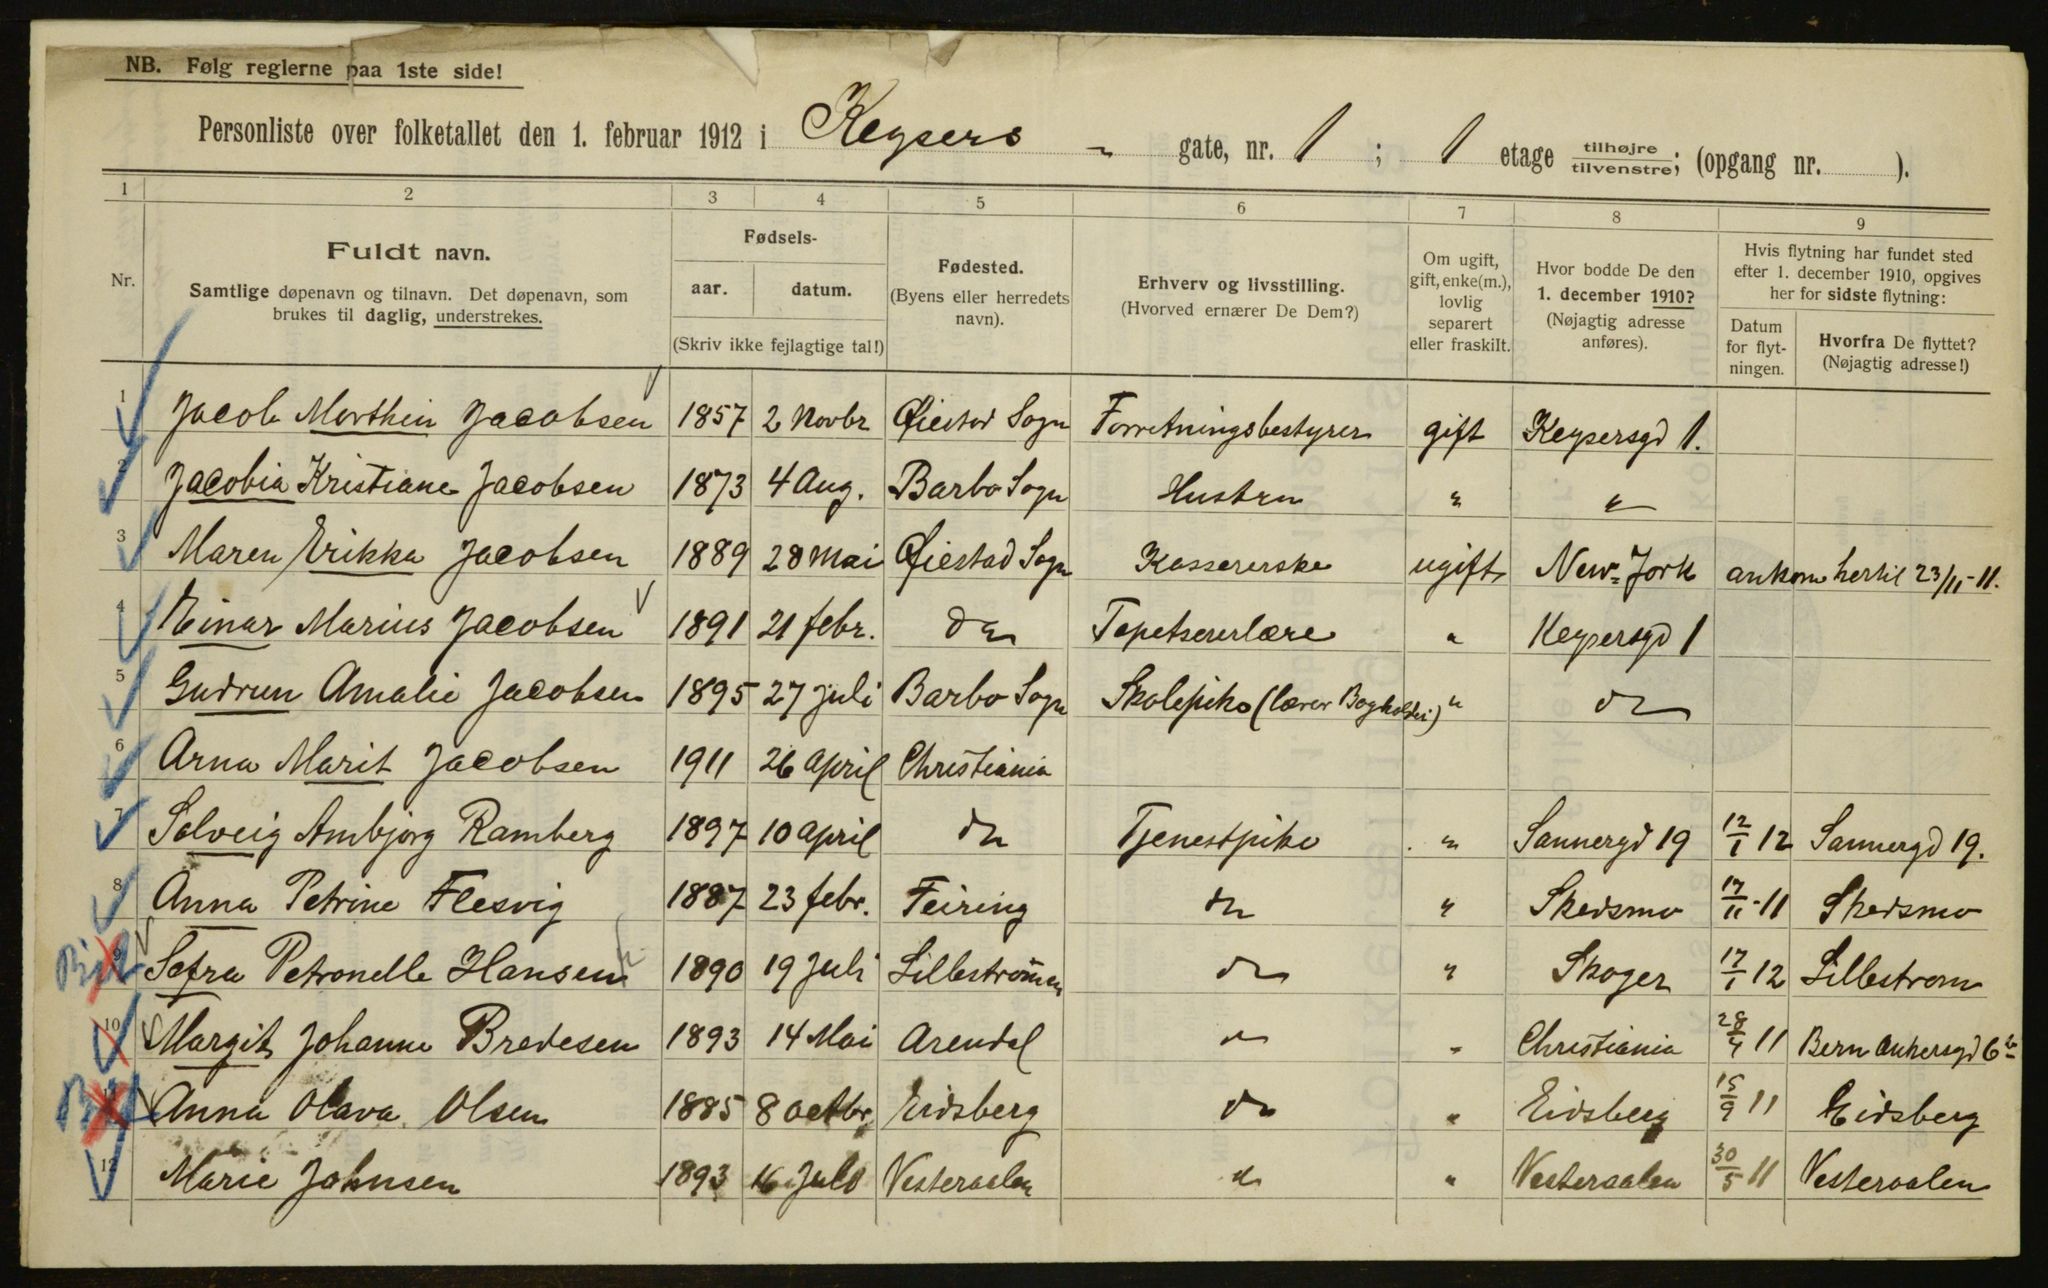 NB. Følg reglerne paa 1ste side!
Personliste over folketallet den 1. februar 1912 i Keysers gate, nr. 1 ; 1 etage tilhøjre tilvenstre; (opgang nr. ).
1 2 3 4 5 6 7 8 9
Nr. Fuldt navn. Samtlige døpenavn og tilnavn. Det døpenavn, som brukes til daglig, understrekes.
Fødsels- aar. datum. (Skriv ikke fejlagtige tal!)
Fødested. (Byens eller herredets navn).
Erhverv og livsstilling. (Hvorved ernærer De Dem?)
Om ugift, gift, enke(m.), lovlig separert eller fraskilt.
Hvor bodde De den 1. december 1910? (Nøjagtig adresse anføres).
Hvis flytning har fundet sted efter 1. december 1910, opgives her for sidste flytning:
Datum for flyt-ningen. Hvorfra De flyttet? (Nøjagtig adresse!)
1 Jacob Marthin Jacobsen 1857 2 Novbr Øiestad Sogn Forretningsbestyrer gift Keysersgd 1.
2 Jacobia Kristiane Jacobsen 1873 4 Aug. Barbo Sogn Hustru " "
3 Maren Erikka Jacobsen 1889 28 Mai Øiestad Sogn Kassererske ugift New-York ankom hertil 23/11-11.
4 Einar Marius Jacobsen 1891 21 febr. do Tapetsererlære " Keysersgd 1
5 Gudrun Amalie Jacobsen 1895 27 juli Barbo Sogn Skolepike (lærer Bogholderi) " do
6 Arna Marit Jacobsen 1911 26 april Christiania
7 Solveig Ambjørg Ramberg 1897 10 april do Tjenestpike " Sannergd 19 12/1 12 Sannergd 19.
8 Anna Petrine Flesvig 1887 23 febr. Feiring do " Skedsmo 17/11-11 Skedsmo
9 Sofra Petronelle Hansen 1890 19 Juli Lillestrømmen do " Skoger 17/1 12 Lillestrøm
10 Margit Johanne Bredesen 1893 14 Mai Arendal do " Christiania 28/4 11 Bern Ankersgd 6b
11 Anna Olava Olsen 1885 8 octbr. Eidsberg do " Eidsberg 15/9 11 Eidsberg
12 Marie Johnsen 1893 16 Juli Vesteraalen do " Vesteraalen 30/5 11 Vesteraalen